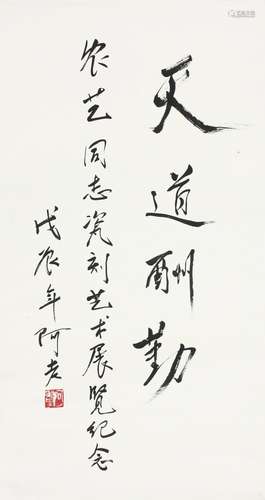 天道酬勤
农艺同志瓷刻艺术展览纪念
戊辰年阿老